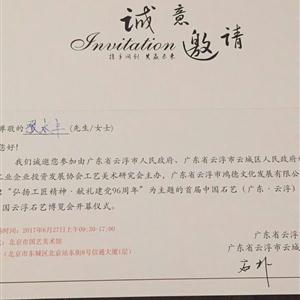 诚意邀请
Invitation
携手同创 共赢未来
尊敬的 永丰 (先生/女士)
您好!
我们诚邀您参加由广东省云浮市人民政府、广东省云浮市云城区人民政府
工业企业投资发展协会工艺美术研究会主办,广东省云浮市鸿德文化发展有限公
以“弘扬工匠精神·献礼建党96周年”为主题的首届中国石艺(广东·云浮)
国云浮石艺博览会开幕仪式。
时间:2017年6月27日上午09:30-17:00
:北京市国艺美术馆
:北京市东城区北京站东街8号信通大厦1层)
广东省云
广东省云浮市云城